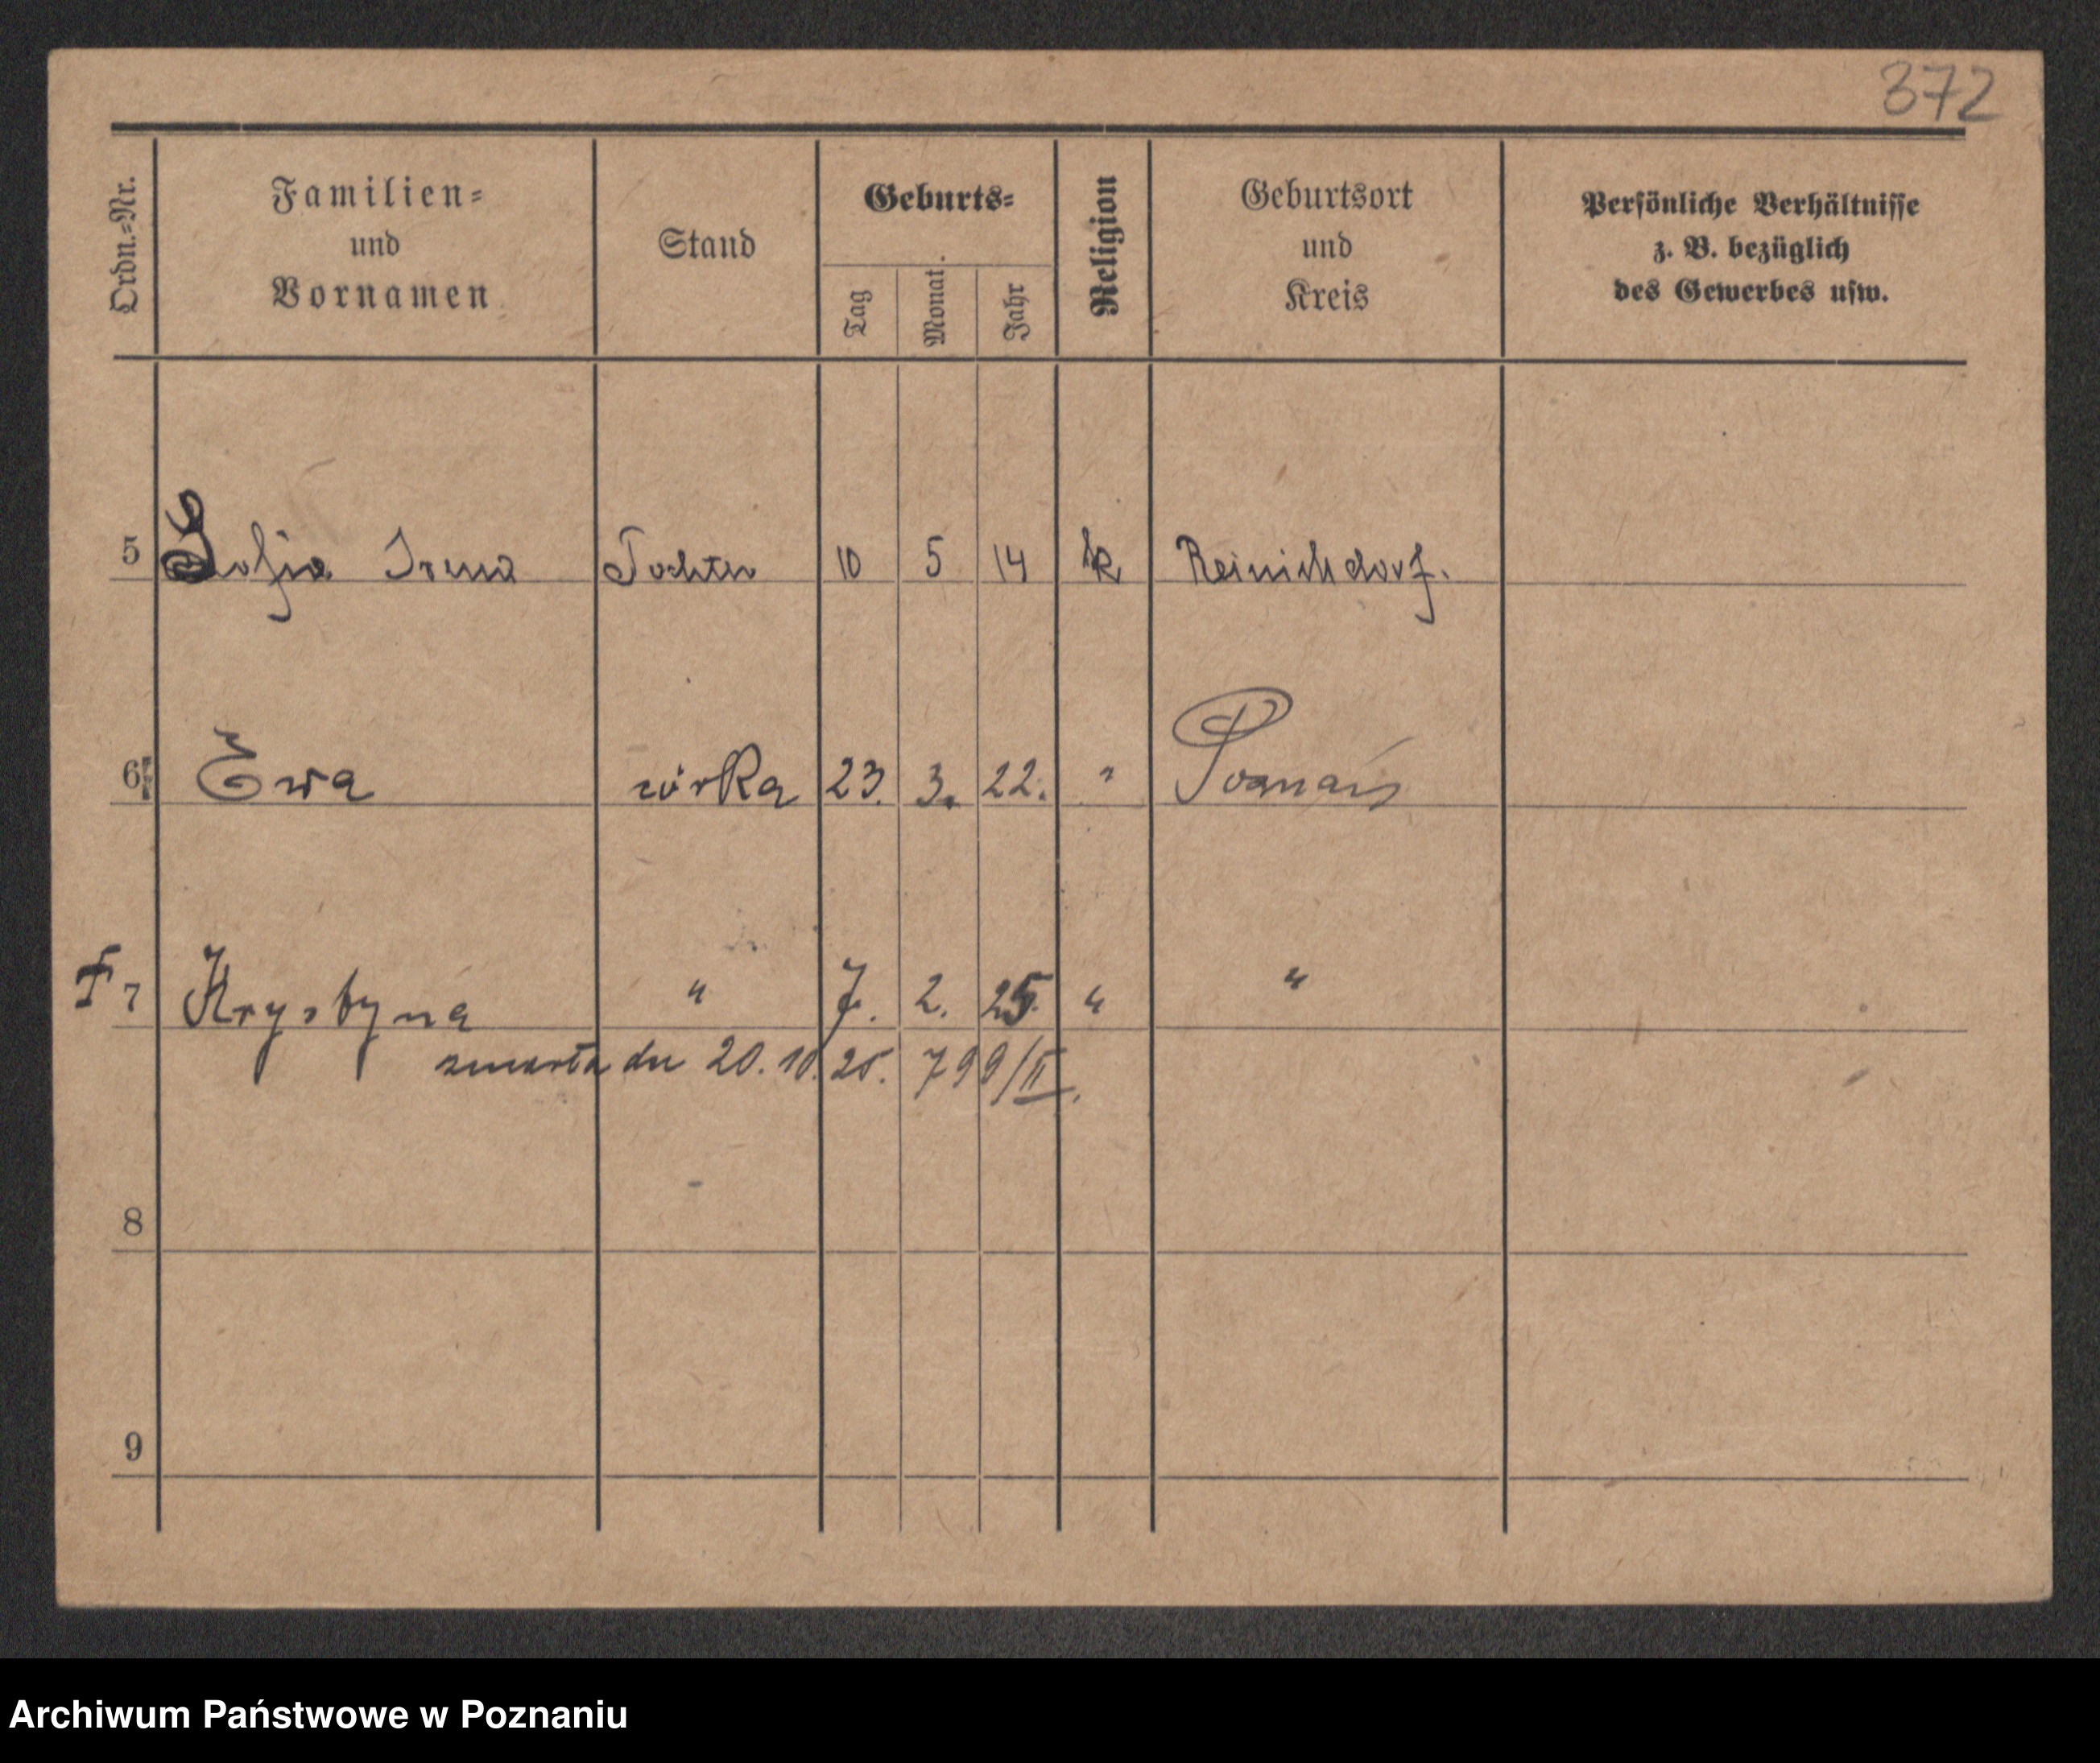 372
Ordn.-Nr.
Familien-
und
Vornamen
Stand
Geburts-
Tag
Monat
Jahr
Religion
Geburtsort
und
Kreis
Persönliche Verhältnisse
z. B. bezüglich
des Gewerbes usw.
5 Sofia Irena Tochter 10 5 14 k Reinichdorf.
6 Ewa córka 23. 3. 22. " Poznań
7 Krystyna " 7. 2. 25. " "
zmarła dn 20. 10. 25. 799/II.
8
9
Archiwum Państwowe w Poznaniu